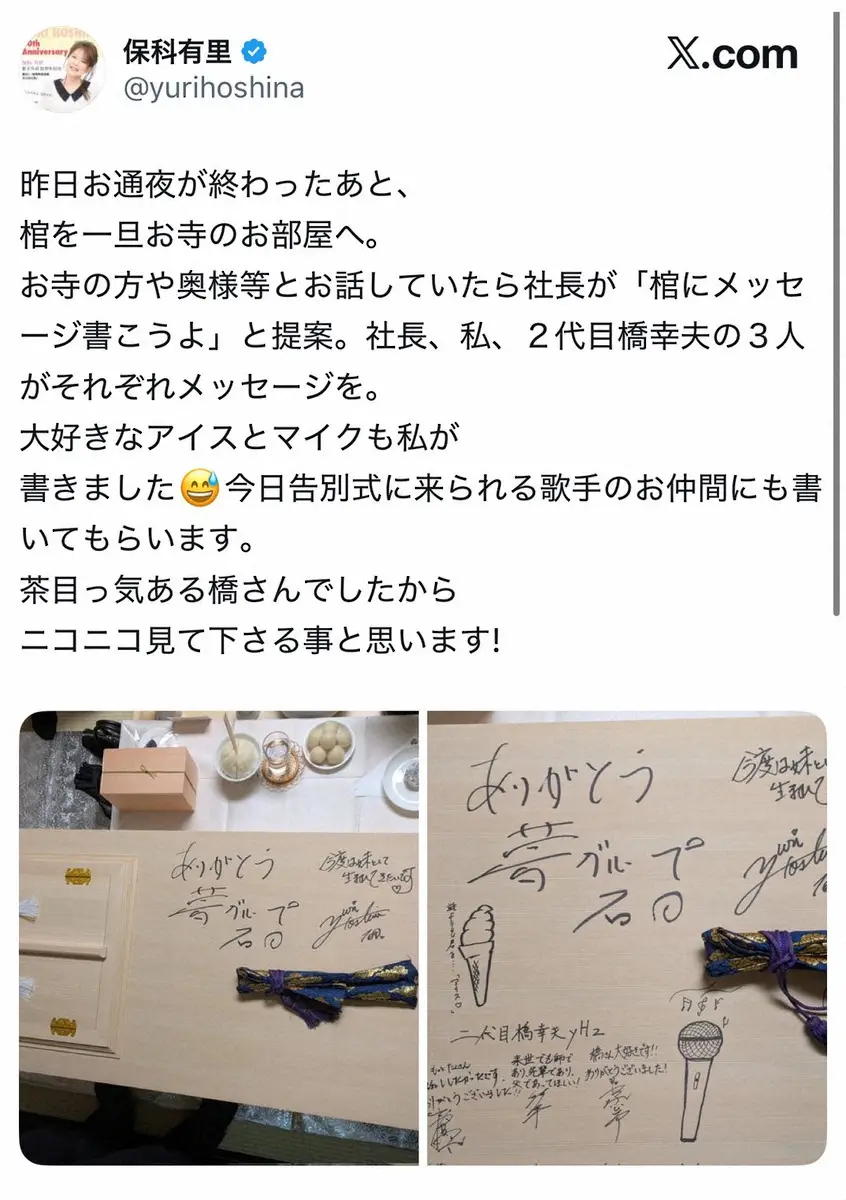 保科有里
@yurihoshina
X.com
昨日お通夜が終わったあと、
棺を一旦お寺のお部屋へ。
お寺の方や奥様等とお話していたら社長が「棺にメッセ
ージ書こうよ」と提案。社長、私、２代目橋幸夫の３人
がそれぞれメッセージを。
大好きなアイスとマイクも私が
書きました😅今日告別式に来られる歌手のお仲間にも書
いてもらいます。
茶目っ気ある橋さんでしたから
ニコニコ見て下さる事と思います!
ありがとう
夢グループ
石田
今度は妹として
生まれてきたいです♡
ありがとう
夢グループ
石田
今度は妹とし
生まれて
二代目橋幸夫yH2
来世でも師で
あり、先輩であり、
父であってほしい!
橋さん大好きです!!
ありがとうございました!